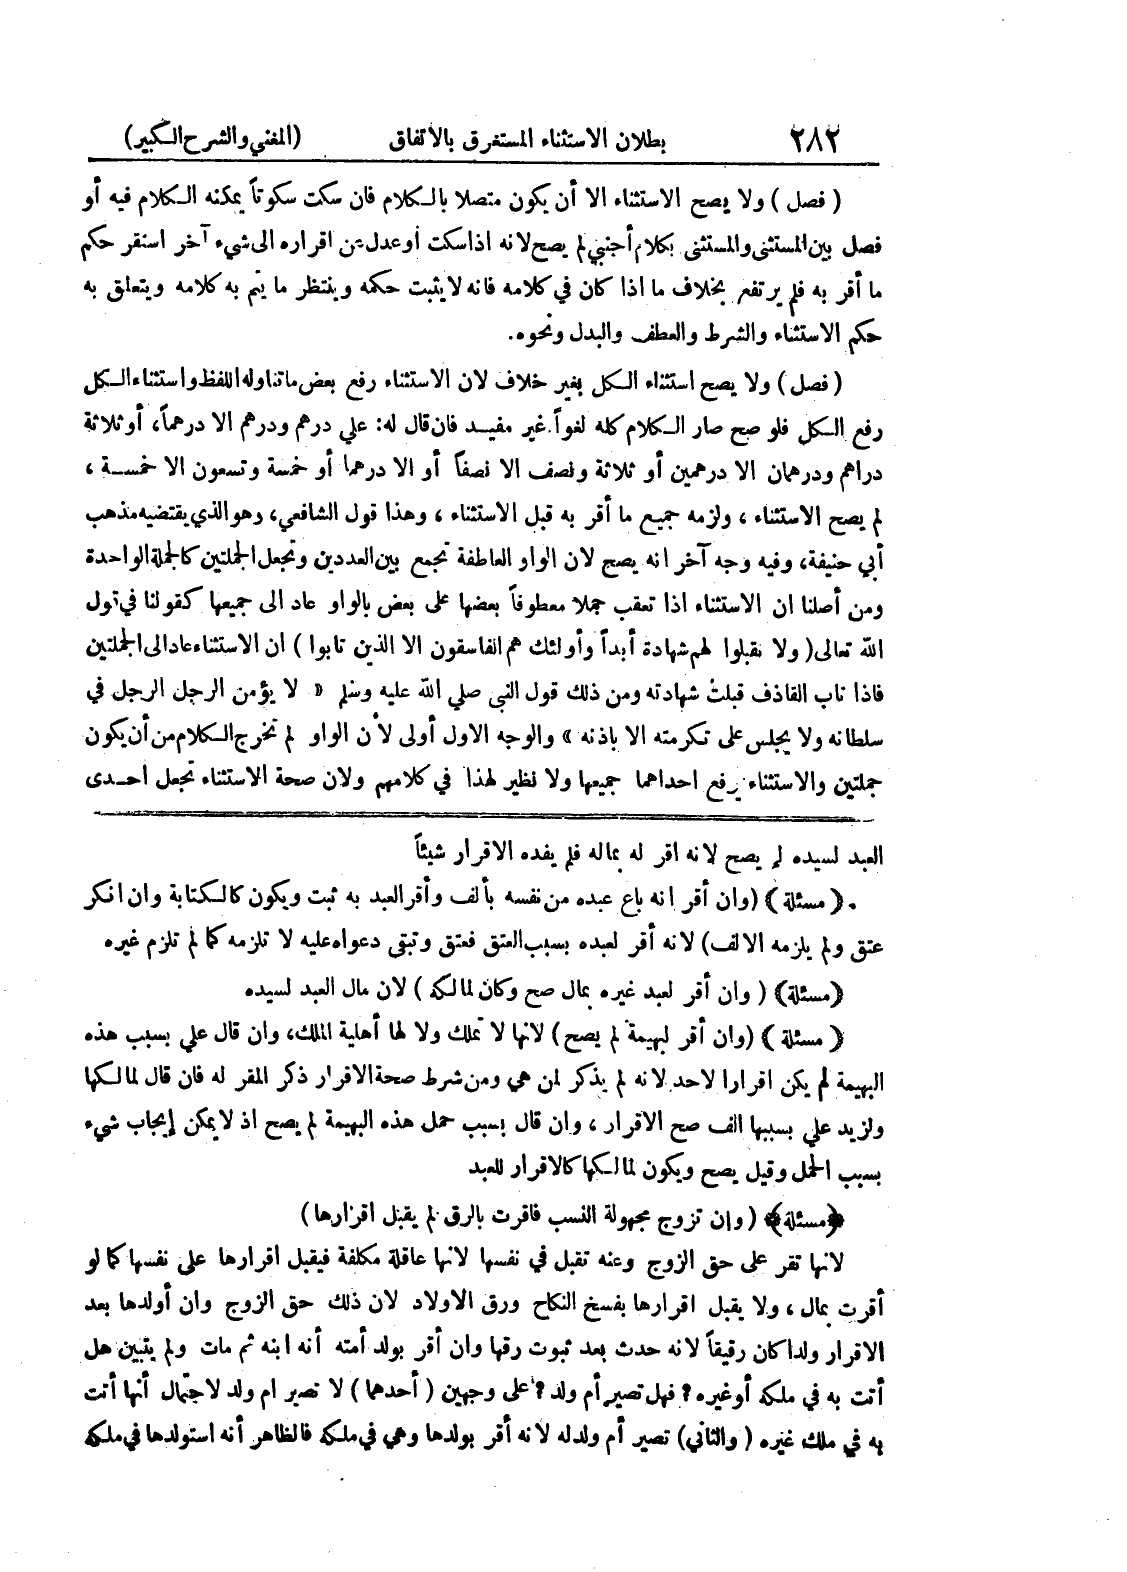 ٢٨٢ بطلان الاستثناء المستغرق بالاتفاق (المغني والشرح الكبير)
( فصل ) ولا يصح الاستثناء الا أن يكون متصلا بالكلام فان سكت سكوتاً يمكنه الكلام فيه أو
فصل بين المستثنى والمستثنى بكلام أجنبي لم يصح لانه اذا سكت أو عدل عن اقراره الى شيء آخر استقر حكم
ما أقر به فلم يرتفع بخلاف ما اذا كان في كلامه فانه لا يثبت حكمه وينتظر ما يتم به كلامه ويتعلق به
حكم الاستثناء والشرط والعطف والبدل ونحوه.
( فصل ) ولا يصح استثناء الكل بغير خلاف لان الاستثناء رفع بعض ما تناوله اللفظ واستثناء الكل
رفع الكل فلو صح صار الكلام كله لغواً غير مفيد فان قال له: علي درهم ودرهم الا درهماً، أو ثلاثة
دراهم ودرهمان الا درهمين أو ثلاثة ونصف الا نصفاً أو الا درهما أو خمسة وتسعون الا خمسة ،
لم يصح الاستثناء ، ولزمه جميع ما أقر به قبل الاستثناء ، وهذا قول الشافعي، وهو الذي يقتضيه مذهب
أبي حنيفة، وفيه وجه آخر انه يصح لان الواو العاطفة تجمع بين العددين وتجعل الجملتين كالجملة الواحدة
ومن أصلنا ان الاستثناء اذا تعقب جملا معطوفاً بعضها على بعض بالواو عاد الى جميعها كقولنا في قول
الله تعالى( ولا تقبلوا لهم شهادة أبداً وأولئك هم الفاسقون الا الذين تابوا ) ان الاستثناء عاد الى الجملتين
فاذا تاب القاذف قبلت شهادته ومن ذلك قول النبي صلي الله عليه وسلم « لا يؤمن الرجل الرجل في
سلطانه ولا يجلس على تكرمته الا باذنه » والوجه الاول أولى لأن الواو لم تخرج الكلام من أن يكون
جملتين والاستثناء يرفع احداهما جميعها ولا نظير لهذا في كلامهم ولان صحة الاستثناء تجعل احدى
العبد لسيده لم يصح لانه اقر له بماله فلم يفده الاقرار شيئاً
﴿ مسئلة ﴾ (وان أقر انه باع عبده من نفسه بألف وأقر العبد به ثبت ويكون كالكتابة وان انكر
عتق ولم يلزمه الالف) لانه أقر لعبده بسبب العتق فعتق وتبقى دعواه عليه لا تلزمه كما لم تلزم غيره
﴿مسئلة﴾ ( وان أقر لعبد غيره بمال صح وكان لمالكه ) لان مال العبد لسيده
﴿ مسئلة ﴾ (وان أقر لبهيمة لم يصح) لانها لا تملك ولا لها أهلية الملك، وان قال علي بسبب هذه
البهيمة لم يكن اقرارا لاحد لانه لم يذكر لمن هي ومن شرط صحة الاقرار ذكر المقر له فان قال لمالكها
ولزيد علي بسببها الف صح الاقرار ، وان قال بسبب حمل هذه البهيمة لم يصح اذ لا يمكن إيجاب شيء
بسبب الحمل وقيل يصح ويكون لمالكها كالاقرار للعبد
﴿مسئلة﴾ ( وإن تزوج مجهولة النسب فاقرت بالرق لم يقبل اقرارها )
لانها تقر على حق الزوج وعنه تقبل في نفسها لانها عاقلة مكلفة فيقبل اقرارها على نفسها كما لو
أقرت بمال ، ولا يقبل اقرارها بفسخ النكاح ورق الاولاد لان ذلك حق الزوج وان أولدها بعد
الاقرار ولدا كان رقيقاً لانه حدث بعد ثبوت رقها وان أقر بولد أمته أنه ابنه ثم مات ولم يتبين هل
أتت به في ملكه أو غيره ؟ فهل تصير أم ولد ؟ على وجهين ( أحدهما ) لا تصير ام ولد لاحتمال أنها أتت
به في ملك غيره ( والثاني) تصير أم ولد له لانه أقر بولدها وهي في ملكه فالظاهر أنه استولدها في ملكه